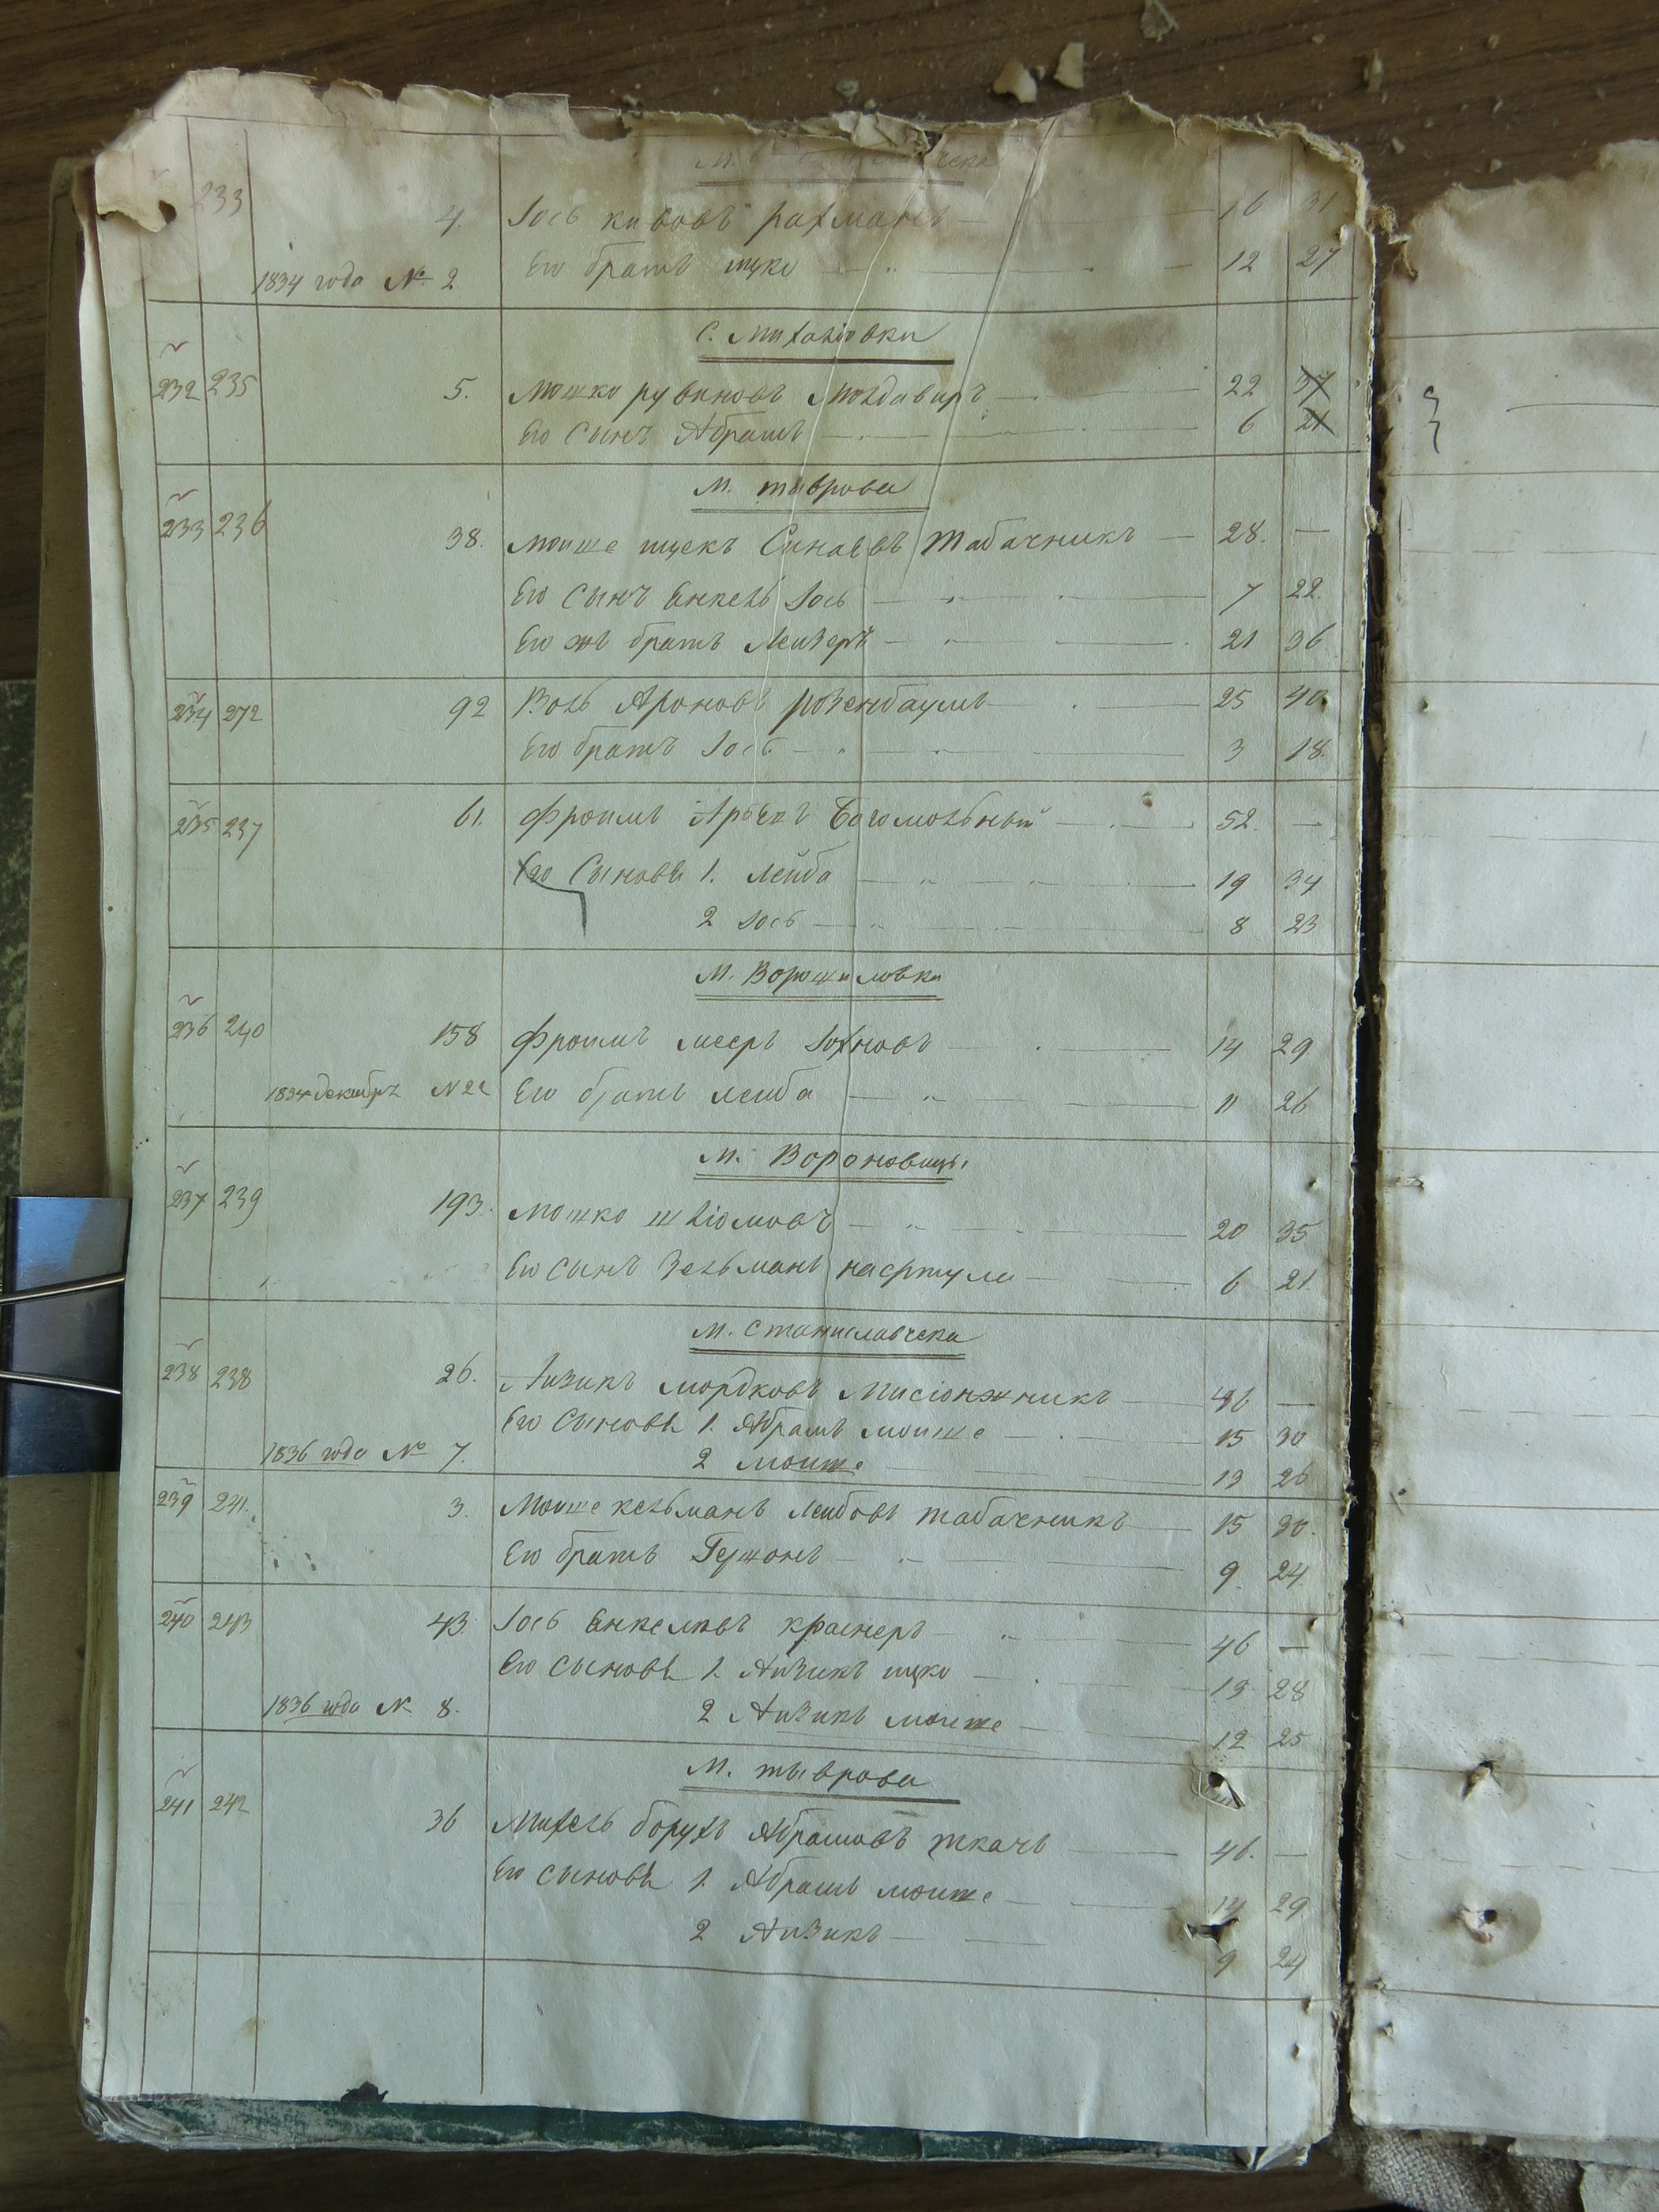 М. ческа
233 4. Іось кивовъ рахманъ 16 31
1834 года № 2 Его братъ ицко 12 27
С. Михаловки
232 235 5. Мошко рувиновъ Молдавиръ 22 37
Его Сынъ Абрамъ 6 21
М. тыврова
233 236 38. Моише ицекъ Синаевъ Табачникъ 28. —
Его Сынъ Янкель Іось 7 22.
Его жъ братъ Леизеръ 21 36
234 272 92 Воль Ароновъ розенбаумъ 25 40
Его братъ Іось 3 18.
235 237 61. Фроимъ Арьекъ Богомольный 52. —
Его Сыновья 1. Лейба 19 34
2 Іось 8 23
М. Ворошиловки
236 240 158 Фроимъ мееръ Іохновъ 14 29
1834 декабръ N 22 Его братъ леиба 11 26
М. Вороновицы
237 239 193. Мошко шліомовъ 20 35
Его сынъ Зельманъ нафтула 6 21
М. Станиславческа
238 238 26. Аизикъ мордковъ Мисіонжникъ 46 —
Его Сыновья 1. Абрамъ моише 15 30
1836 года № 7. 2 моише 13 26
239 241. 3. Моише кельманъ Леибовъ табачникъ 15 30.
Его братъ Гершонъ 9. 24
240 243 43. Іось Янкелевъ краснеръ 46 —
Его сыновья 1. Аизикъ ицко 13 28
1836 года № 8. 2 Аизикъ моише 12 25
М. тыврова
241 242 36 Михель борухъ Абрамовъ ткачъ 46. —
Его сыновья 1. Абрамъ моише 14 29
2 Аизикъ 9 24